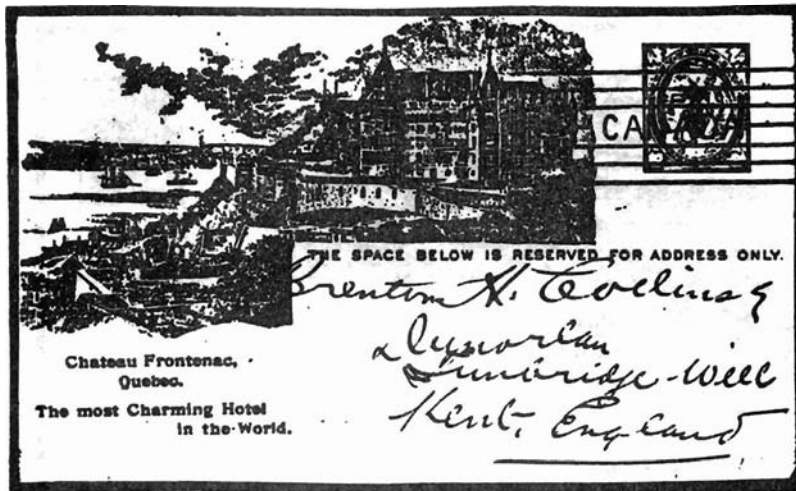 CANADA
THE SPACE BELOW IS RESERVED FOR ADDRESS ONLY.
Brenton H. Collins
Dunorlan
Tunbridge-Well
Kent, England
Chateau Frontenac,
Quebec.
The most Charming Hotel
in the World.